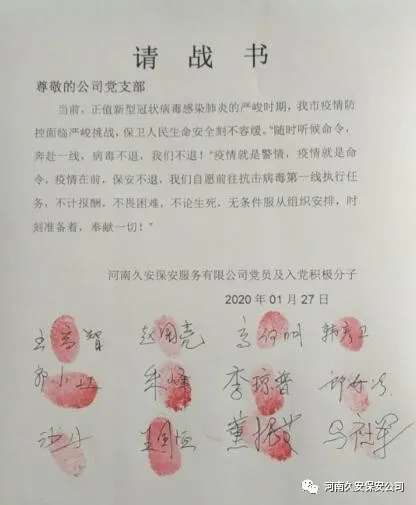 请战书
尊敬的公司党支部
当前，正值新型冠状病毒感染肺炎的严峻时期，我市疫情防
控面临严峻挑战，保卫人民生命安全刻不容缓。“随时听候命令，
奔赴一线，病毒不退，我们不退！”疫情就是警情，疫情就是命
令，疫情在前，保安不退，我们自愿前往抗击病毒第一线执行任
务，不计报酬，不畏困难，不论生死，无条件服从组织安排，时
刻准备着，奉献一切！”
河南久安保安服务有限公司党员及入党积极分子
2020年01月27日
赵国亮
李琼普
河南久安保安公司